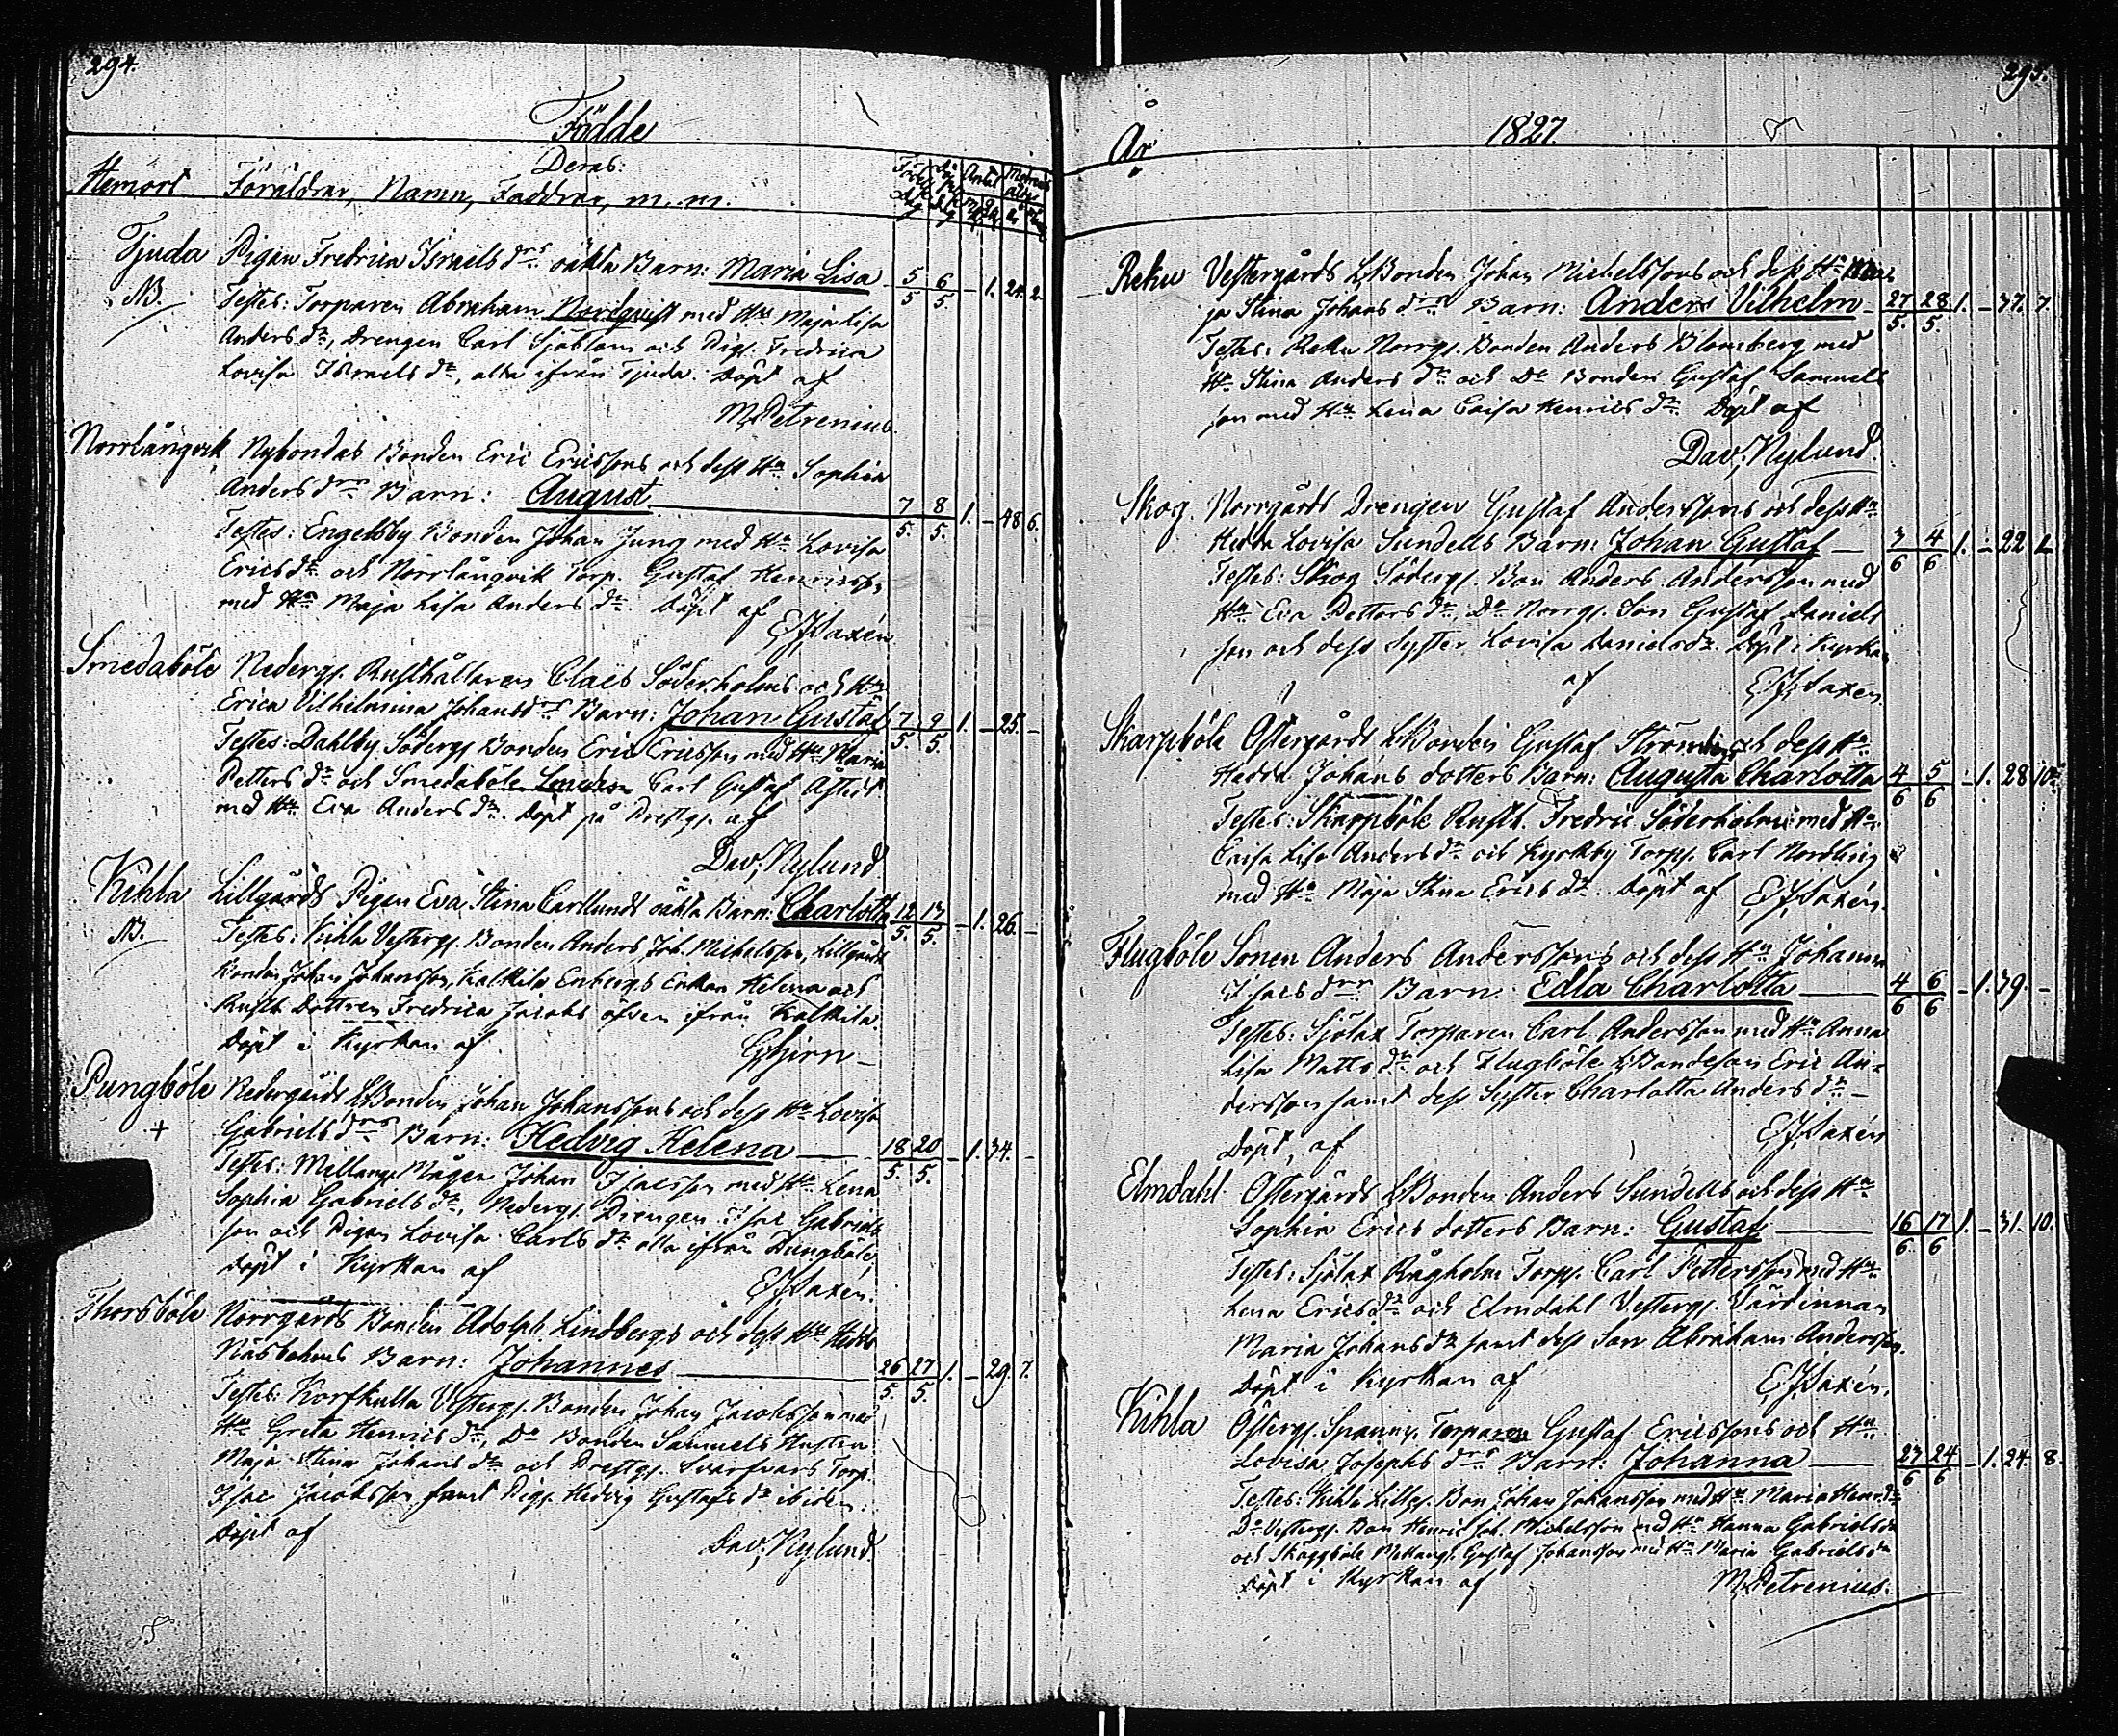 294.
Födde
Hemort Föräldrar, Deras Namn, Faddrar, m. m.
Tjuda Pigan Fredrica Israels drs oäkta Barn: Maria Lisa 5/5 6/5 - 1. 24. 2
NB. Testes: Torparen Abraham Nordquist med Hu Maja Lisa
Anders dr, Drengen Carl Sjöblom och Pig. Fredrica
Lovisa Israels dr, alla ifrån Tjuda. Döpt af
M. Petrenius.
Norrlångvik Nybondas Bonden Eric Ericssons och dess Hu Sophia
Anders drs Barn: August 7/5. 8/5. 1. - 48 6.
Testes: Engelsby Bonden Johan Jung med Hu Lovisa
Ericsdr och Norrlångvik Torp. Gustaf Henricss.
med Hu Maja Lisa Anders dr. Döpt af
E. J. Saxén
Smedaböle Nederg. Rusthållaren Claes Söderholms och Hu
Erica Vilhelmina Johansdrs Barn: Johan Gustaf 7/5. 9/5. 1. - 25. -
Testes: Dahlby Söderg. Bonden Eric Ericsson med Hu Maria
Petters dr och Smedaböle Smeden Carl Gustaf
med Hu Eva Anders dr. Döpt på Prestg. af
Dav. Nylund
Kihla Lillgårds Pigan Eva Stina Carllunds oäkta Barn: Charlotta 12/5. 13/5. - 1. 26. -
NB. Testes: Kihla Vesterg. Bonden Anders Joh. Michelsson, Lillgårds
Bonden Johan Johansson, Kalkila Enbergs Enkan Helena och
Rusth. Dottren Fredrica Jacobs äfven ifrån Kalkila.
Döpt i Kyrkan af G. Hjorn
Pungböle Nedergårds LBonden Johan Johanssons och dess Hu Lovisa
+ Gabriels drs Barn: Hedvig Helena 18/5. 20/5. - 1. 34. -
Testes: Mellang. Mågen Johan Isacsson med Hu Lena
Sophia Gabriels dr, Nederg. Drengen Isac Gabriels
son och Pigan Lovisa Carls dr alla ifrån Pungböle
Döpt i Kyrkan af E. J. Saxén.
Thorsböle Norrgårds Bonden Adolph Lindbergs och dess Hu Hedda
Näsbohms Barn: Johannes 26/5. 27/5. 1. - 29. 7.
Testes: Korfkulla Vesterg. Bonden Johan Jacobsson med
Hu Greta Henrics dr, Do Bonden Samuels Hustru
Maja Stina Johans dr och Prestg. Svarfvars Torp.
Isac Jacobsson samt Pig. Hedvig Gustafs dr ibidem.
Döpt af Dav. Nylund.
295.
År 1827.
Reku Vestergårds LBonden Johan Michelssons och dess Hu Ma
ja Stina Johans drs Barn: Anders Vilhelm 27/5. 28/5. 1. - 37. 7.
Testes: Reku Norrg. Bonden Anders Blomberg med
Hu Stina Anders dr och Do Bonden Gustaf Samuels
son med Hu Lena Caisa Henrics dr Döpt af
Dav. Nylund.
Skog. Norrgårds Drengen Gustaf Anderssons och dess Hu
Hedda Lovisa Sundells Barn: Johan Gustaf 3/6 4/6 1. - 22
Testes: Skog Söderg. Bon. Anders Andersson med
Hu Eva Petters dr, Do Norrg. Son Gustaf Daniels
son och dess Syster Lovisa Danielsdr. Döpt i Kyrkan
af E. J. Saxén.
Skarpböle Östergårds LBonden Gustaf Ströms och dess Hu
Hedda Johans dotters Barn: Augusta Charlotta 4/6 5/6 - 1. 28 10
Testes: Skarpböle Rusth. Fredric Söderholm med Hu
Caisa Lisa Anders dr och Kyrkby Torp. Carl Nordling
med Hu Maja Stina Erics dr. Döpt af E. J. Saxén.
Flugböle Sonen Anders Anderssons och dess Hu Johanna
Isacs drs Barn: Edla Charlotta 4/6 6/6 - 1. 39. -
Testes: Sjölax Torparen Carl Andersson med Hu Anna
Lisa Matts dr och Flugböle LBondeson Eric An-
dersson samt dess Syster Charlotta Anders dr -
Döpt, af E. J. Saxén
Elmdahl Östergårds LBonden Anders Sundells och dess Hu
Sophia Erics dotters Barn: Gustaf 16/6 17/6 1. - 31. 10.
Testes: Sjölax Rågholm Torp. Carl Pettersson med Hu
Lena Ericsdr och Elmdahl Vesterg. Värdinnan
Maria Johansdr samt dess Son Abraham Andersson.
Döpt i Kyrkan af E. J. Saxén.
Kihla Österg. Torparen Gustaf Ericssons och Hu
Lovisa Josephs drs Barn: Johanna 23/6 24/6 - 1. 24. 8.
Testes: Kihla Lillg. Bon Johan Johansson med Hu Maria Henr. dr
Do Vesterg. Bon Henric Joh. Michelsson med Hu Hanna Gabrielsdr
och Skäggböle Mellang. Gustaf Johansson med Hu Maria Gabrielsdr
Döpt i Kyrkan af M. Petrenius.